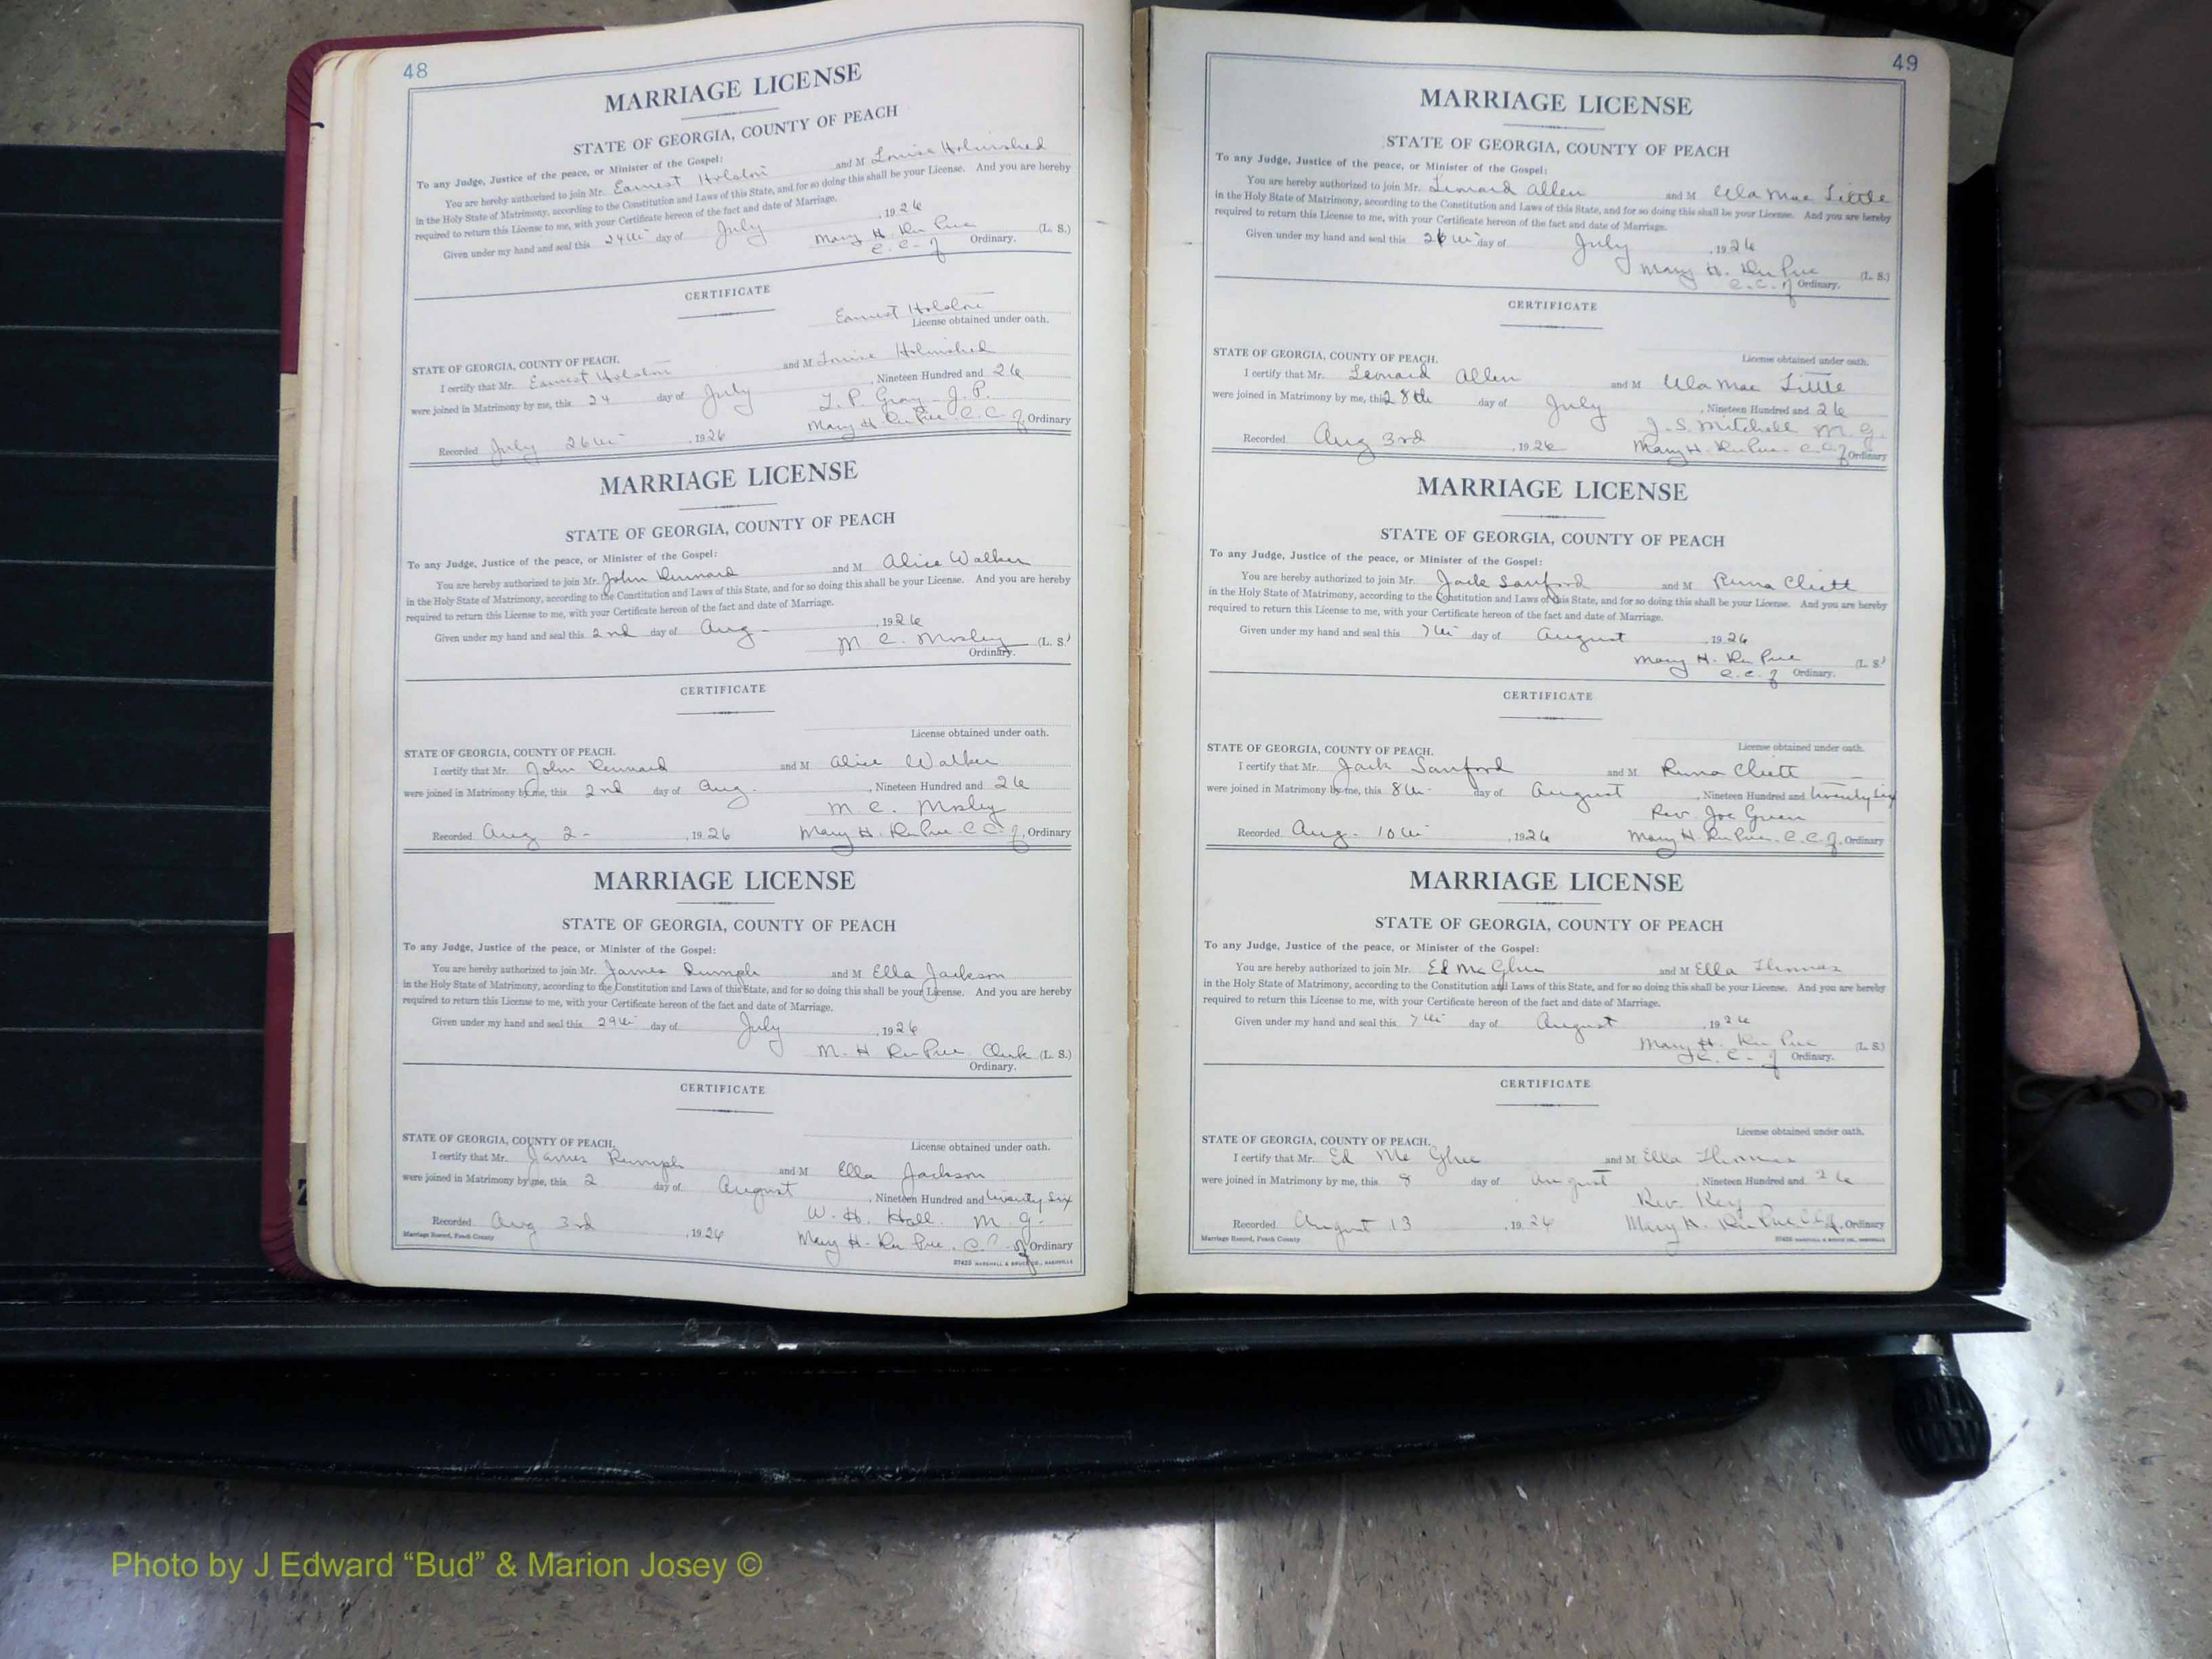 48
MARRIAGE LICENSE
STATE OF GEORGIA, COUNTY OF PEACH
To any Judge, Justice of the peace, or Minister of the Gospel:
You are hereby authorized to join Mr. Earnest and M Louise
in the Holy State of Matrimony, according to the Constitution and Laws of this State, and for so doing this shall be your License. And you are hereby
required to return this License to me, with your Certificate hereon of the fact and date of Marriage.
Given under my hand and seal this 24th day of July, 1926
Mary H. (L. S.)
C. C. of Ordinary.
CERTIFICATE
Earnest
License obtained under oath.
STATE OF GEORGIA, COUNTY OF PEACH.
I certify that Mr. Earnest and M Louise
were joined in Matrimony by me, this 24 day of July, Nineteen Hundred and 26
T. P. Gray - J. P.
Recorded July 26th, 1926 Mary H. C. C. of, Ordinary
MARRIAGE LICENSE
STATE OF GEORGIA, COUNTY OF PEACH
To any Judge, Justice of the peace, or Minister of the Gospel:
You are hereby authorized to join Mr. John and M Alice Walker
in the Holy State of Matrimony, according to the Constitution and Laws of this State, and for so doing this shall be your License. And you are hereby
required to return this License to me, with your Certificate hereon of the fact and date of Marriage.
Given under my hand and seal this 2nd day of Aug, 1926
M. C. Mosley (L. S.)
Ordinary.
CERTIFICATE
License obtained under oath.
STATE OF GEORGIA, COUNTY OF PEACH.
I certify that Mr. John and M Alice Walker
were joined in Matrimony by me, this 2nd day of Aug., Nineteen Hundred and 26
M. C. Mosley
Recorded Aug 2 -, 1926 Mary H. C. C. of, Ordinary
MARRIAGE LICENSE
STATE OF GEORGIA, COUNTY OF PEACH
To any Judge, Justice of the peace, or Minister of the Gospel:
You are hereby authorized to join Mr. James Rumph and M Ella Jackson
in the Holy State of Matrimony, according to the Constitution and Laws of this State, and for so doing this shall be your License. And you are hereby
required to return this License to me, with your Certificate hereon of the fact and date of Marriage.
Given under my hand and seal this 29th day of July, 1926
M. H. Clerk (L. S.)
Ordinary.
CERTIFICATE
License obtained under oath.
STATE OF GEORGIA, COUNTY OF PEACH.
I certify that Mr. James Rumph and M Ella Jackson
were joined in Matrimony by me, this 2 day of August, Nineteen Hundred and twenty six
W. H. Hall. M. G.
Recorded Aug 3rd, 1926 Mary H. C. C. of Ordinary
Marriage Record, Peach County
37425 MARSHALL & BRUCE CO., NASHVILLE
49
MARRIAGE LICENSE
STATE OF GEORGIA, COUNTY OF PEACH
To any Judge, Justice of the peace, or Minister of the Gospel:
You are hereby authorized to join Mr. Leonard Allen and M Ula Mae Little
in the Holy State of Matrimony, according to the Constitution and Laws of this State, and for so doing this shall be your License. And you are hereby
required to return this License to me, with your Certificate hereon of the fact and date of Marriage.
Given under my hand and seal this 26th day of July, 1926
Mary H. (L. S.)
C. C. of Ordinary.
CERTIFICATE
License obtained under oath.
STATE OF GEORGIA, COUNTY OF PEACH.
I certify that Mr. Leonard Allen and M Ula Mae Little
were joined in Matrimony by me, this 28th day of July, Nineteen Hundred and 26
J. S. Mitchell M. G.
Recorded Aug 3rd, 1926 Mary H. C. C. of Ordinary
MARRIAGE LICENSE
STATE OF GEORGIA, COUNTY OF PEACH
To any Judge, Justice of the peace, or Minister of the Gospel:
You are hereby authorized to join Mr. Jack Sanford and M
in the Holy State of Matrimony, according to the Constitution and Laws of this State, and for so doing this shall be your License. And you are hereby
required to return this License to me, with your Certificate hereon of the fact and date of Marriage.
Given under my hand and seal this 7th day of August, 1926
Mary H. (L. S.)
C. C. of Ordinary.
CERTIFICATE
License obtained under oath.
STATE OF GEORGIA, COUNTY OF PEACH.
I certify that Mr. Jack Sanford and M
were joined in Matrimony by me, this 8th day of August, Nineteen Hundred and twenty six
Rev. Joe Green
Recorded Aug. 10th, 1926 Mary H. C. C. of, Ordinary
MARRIAGE LICENSE
STATE OF GEORGIA, COUNTY OF PEACH
To any Judge, Justice of the peace, or Minister of the Gospel:
You are hereby authorized to join Mr. Ed Mc Ghee and M Ella Thomas
in the Holy State of Matrimony, according to the Constitution and Laws of this State, and for so doing this shall be your License. And you are hereby
required to return this License to me, with your Certificate hereon of the fact and date of Marriage.
Given under my hand and seal this 7th day of August, 1926
Mary H. (L. S.)
C. C. of Ordinary.
CERTIFICATE
License obtained under oath.
STATE OF GEORGIA, COUNTY OF PEACH.
I certify that Mr. Ed Mc Ghee and M Ella Thomas
were joined in Matrimony by me, this 8 day of August, Nineteen Hundred and 26
Rev. Key
Recorded August 13, 1926 Mary H. C. C. of, Ordinary
Marriage Record, Peach County
37425 MARSHALL & BRUCE CO., NASHVILLE
Photo by J Edward “Bud” & Marion Josey ©